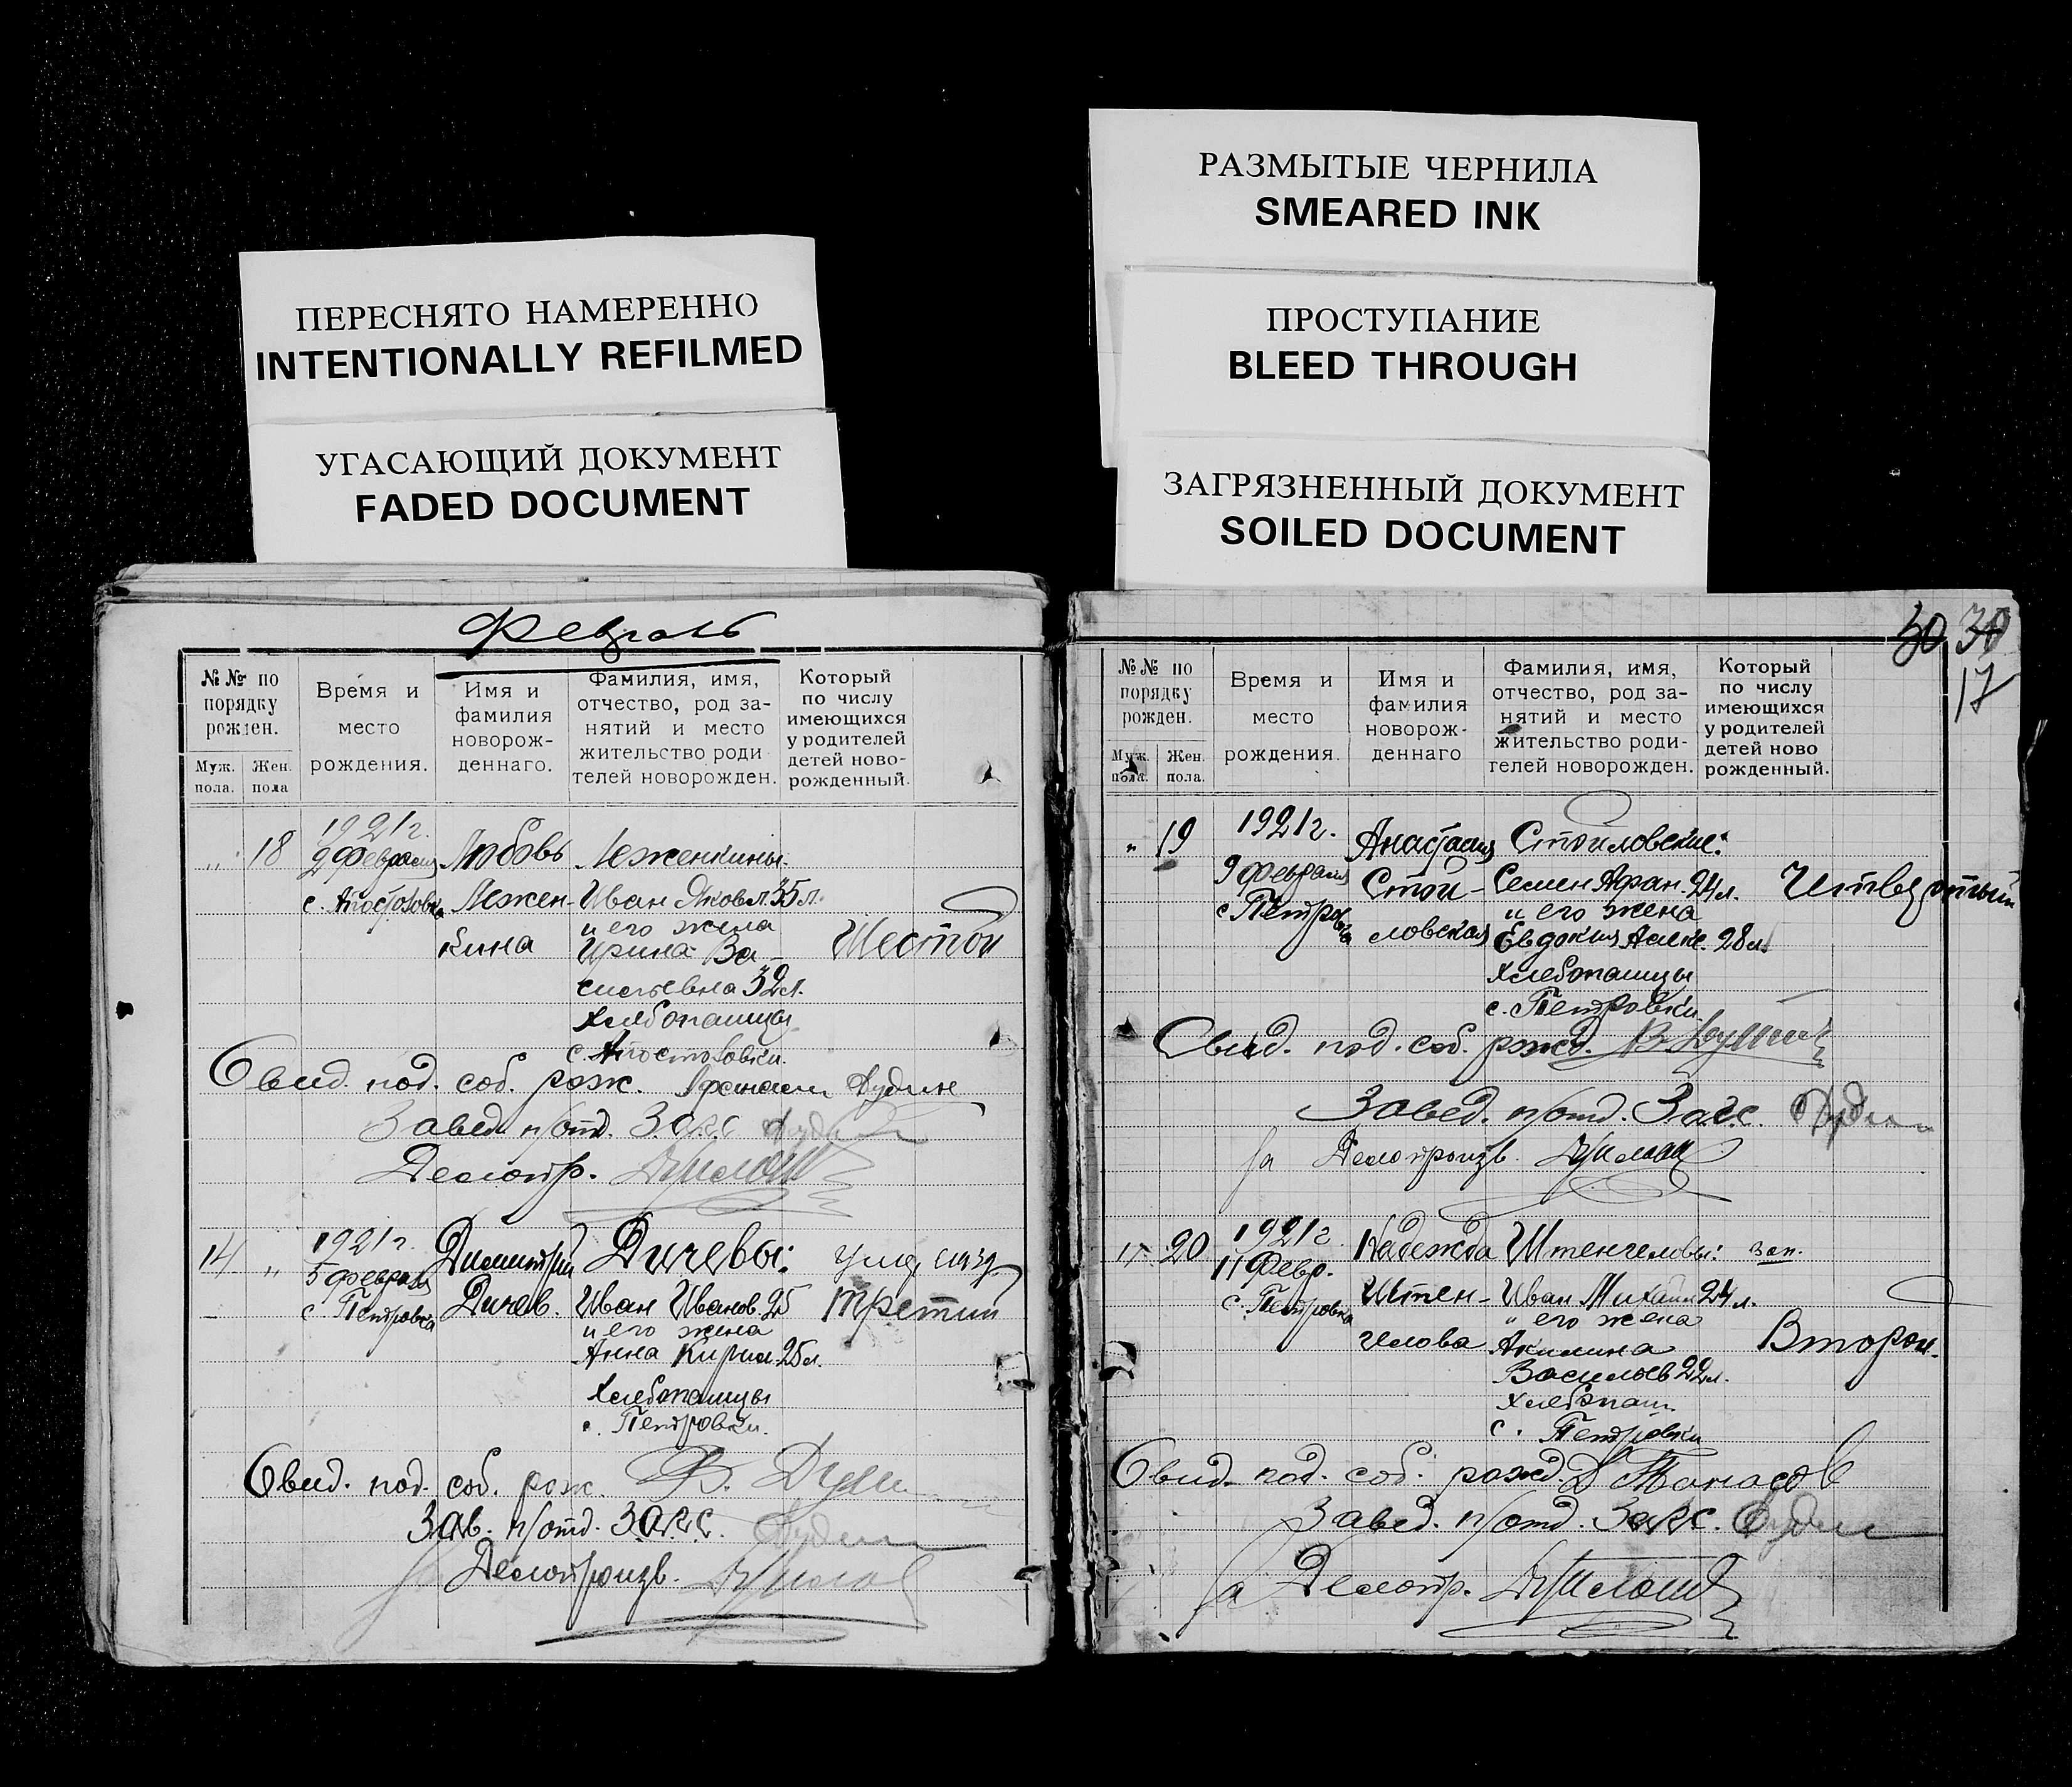 ПЕРЕСНЯТО НАМЕРЕННО
INTENTIONALLY REFILMED
УГАСАЮЩИЙ ДОКУМЕНТ
FADED DOCUMENT
РАЗМЫТЫЕ ЧЕРНИЛА
SMEARED INK
ПРОСТУПАНИЕ
BLEED THROUGH
ЗАГРЯЗНЕННЫЙ ДОКУМЕНТ
SOILED DOCUMENT
Февраль
№№ по
порядку
рожден.
Муж.
пола.
Жен.
пола
Время и
место
рождения.
Имя и
фамилия
новорож-
деннаго.
Фамилия, имя,
отчество, род за-
нятий и место
жительство роди
телей новорожден.
Который
по числу
имеющихся
у родителей
детей ново-
рожденный.
18
1921 г.
2 Февраля
с. Апостоловка
Любовь
Лежен-
кина
Леженкины.
Иван Яковл. 35 л.
и его жена
Ирина Ва-
сильевна 32 л.
Хлебопашцы
с. Апостоловки.
Шестой
Свид. под. соб. рож. Дудик
Завед. п/отд. ЗАГС
Делопр.
14 „
1921 г.
5 февраля
с. Петровка
Димитрий
Дичев.
Дичевы:
Иван Иванов. 25
и его жена
Анна Кирил. 25 л.
Хлебопашцы
с. Петровки.
Третий
Свид. под. соб. рож. В.
Зав. п/отд. ЗАГС.
Делопроизв.
30 30
17
№№ по
порядку
рожден.
Муж.
пола.
Жен.
пола.
Время и
место
рождения.
Имя и
фамилия
новорож-
деннаго
Фамилия, имя,
отчество, род за-
нятий и место
жительство роди-
телей новорожден.
Который
по числу
имеющихся
у родителей
детей ново
рожденный.
„ 19
1921 г.
9 февраля
с. Петровка
Анастасия
Стои-
ловская
Стоиловские:
Семен Афан. 24 л.
и его жена
Евдокия Алек. 28 л.
Хлебопашцы
с. Петровки.
Четвертый
Свид. под. соб. рожд. В
Завед. п/отд. Загс.
за Делопроизв.
„ 20
1921 г
11 Февр.
с. Петровка
Надежда
Штен-
гелова
Штенгеловы: зап.
Иван Михайл 24 л.
и его жена
Акилина
Васильев 22 л.
хлебопаш.
с. Петровки
Второй.
Свид. под. соб. рожд.
Завед. п/отд. Загс.
за Делопр.